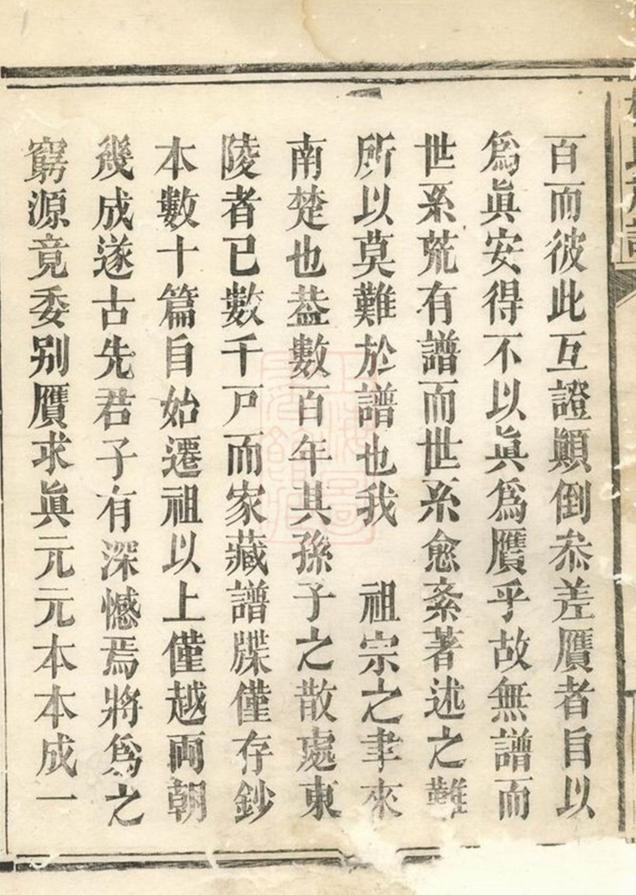 百而彼此互證顚倒叅差贋者自以
爲眞安得不以眞爲贋乎故無譜而
世系荒有譜而世系愈紊著述之難
所以莫難於譜也我　祖宗之聿來
南楚也葢數百年其孫子之散處東
陵者已數千戸而家藏譜牒僅存鈔
本數十篇自始遷祖以上僅越兩朝
幾成遂古先君子有深憾焉將爲之
窮源竟委别贋求眞元元本本成一